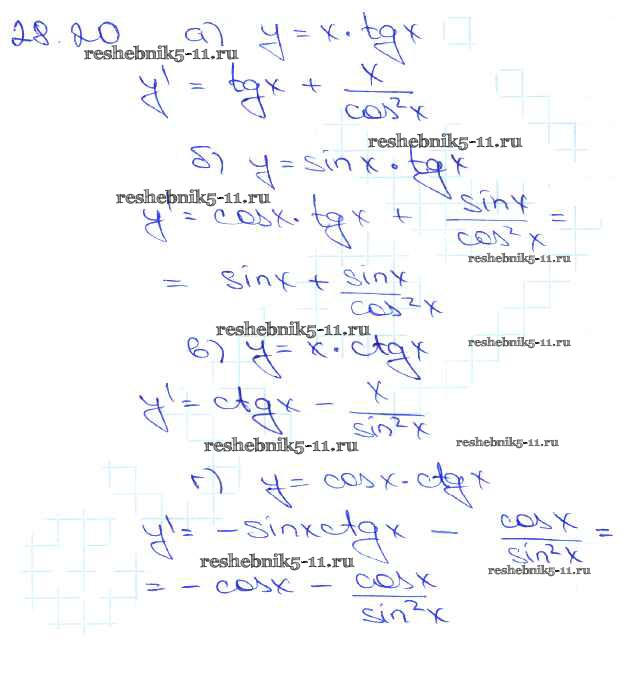 28.20 а) y = x · tgx
reshebnik5-11.ru
y' = tgx + x/cos²x
reshebnik5-11.ru
б) y = sinx · tgx
reshebnik5-11.ru
y' = cosx · tgx + sinx/cos²x =
reshebnik5-11.ru
= sinx + sinx/cos²x
reshebnik5-11.ru
в) y = x · ctgx
reshebnik5-11.ru
y' = ctgx − x/sin²x
reshebnik5-11.ru
reshebnik5-11.ru
г) y = cosx · ctgx
y' = −sinxctgx − cosx/sin²x =
reshebnik5-11.ru
reshebnik5-11.ru
= −cosx − cosx/sin²x